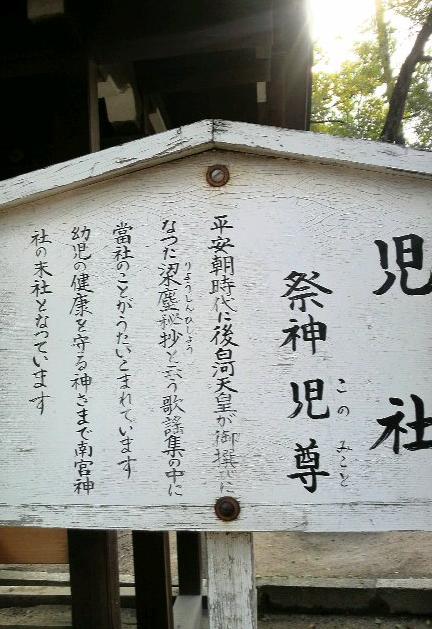 児社
祭神 児尊
このみこと
平安朝時代に後白河天皇が御撰びに
なつた梁塵秘抄と云う歌謡集の中に
りようじんひしよう
當社のことがうたいこまれています
幼児の健康を守る神さまで南宮神
社の末社となっています